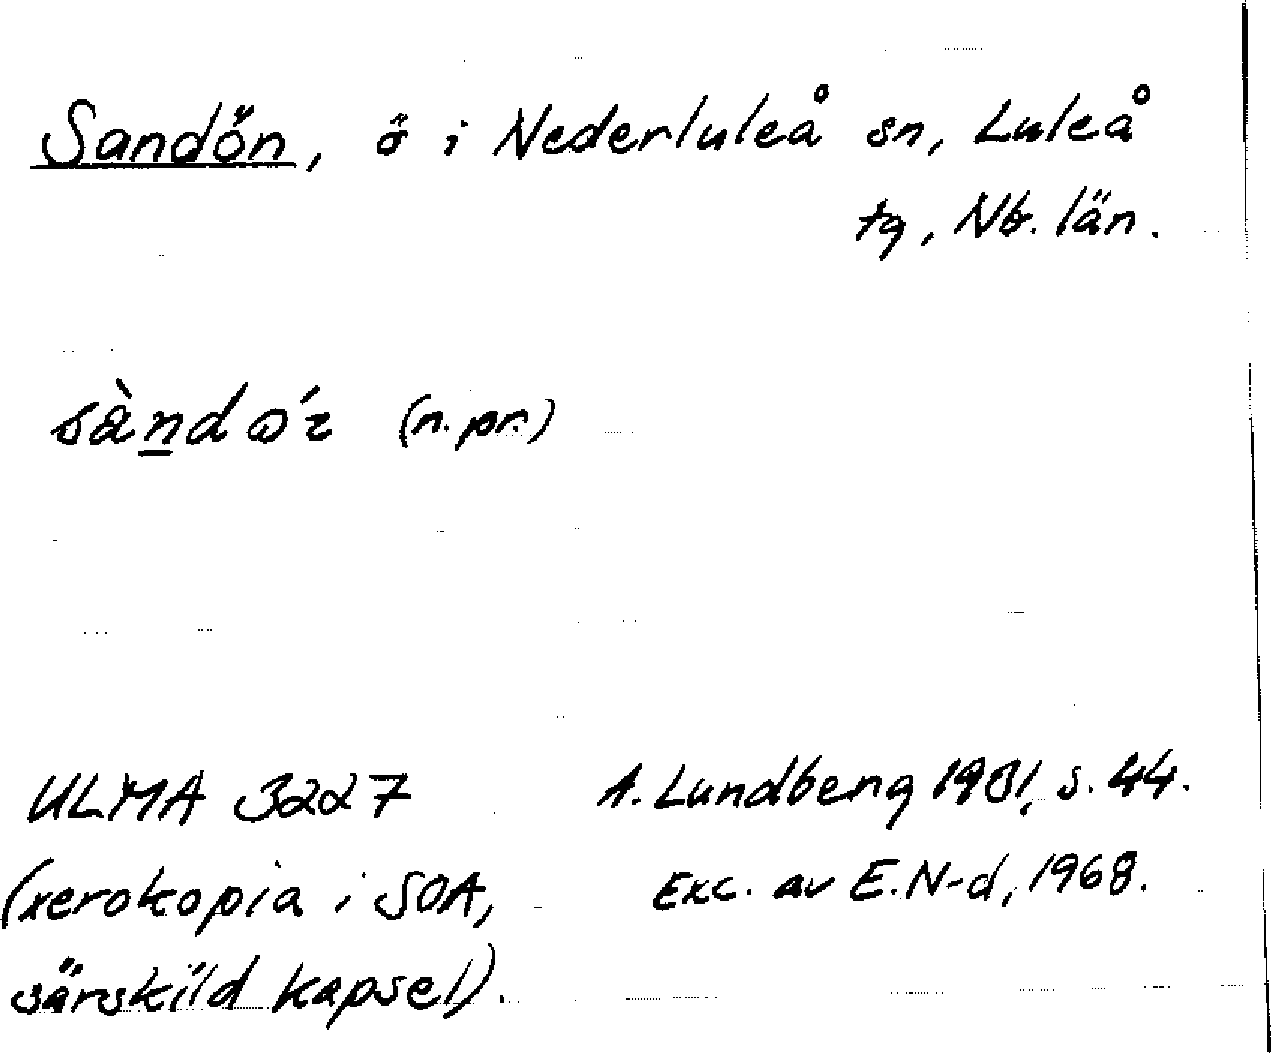 Sandön, ö i Nederluleå sn, Luleå
tg, Nb. län.
(n. pr.)
ULMA 3227
A. Lundberg s. 44.
(xerokopia i SOA,
Exc. av E. N-d, 1968.
särskild kapsel).